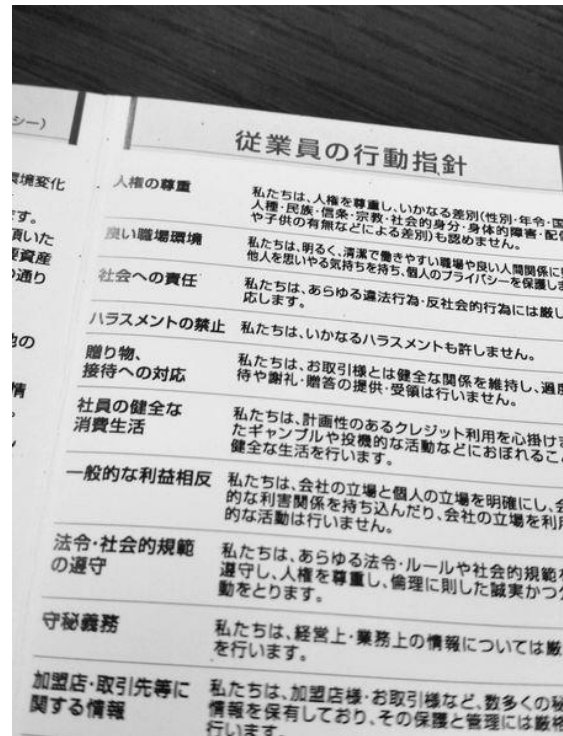 シー)
環境変化
す。
頂いた
要資産
通り
他の
情
従業員の行動指針
人権の尊重
私たちは、人権を尊重し、いかなる差別(性別・年令・国
人種・民族・信条・宗教・社会的身分・身体的障害・配
や子供の有無などによる差別)も認めません。
良い職場環境
私たちは、明るく、清潔で働きやすい職場や良い人間関係に
他人を思いやる気持ちを持ち、個人のプライバシーを保護しま
社会への責任
私たちは、あらゆる違法行為・反社会的行為には厳し
応します。
ハラスメントの禁止
私たちは、いかなるハラスメントも許しません。
贈り物、
接待への対応
私たちは、お取引様とは健全な関係を維持し、過度
待や謝礼・贈答の提供・受領は行いません。
社員の健全な
消費生活
私たちは、計画性のあるクレジット利用を心掛けま
たギャンブルや投機的な活動などにおぼれるこ
健全な生活を行います。
一般的な利益相反
私たちは、会社の立場と個人の立場を明確にし、会
的な利害関係を持ち込んだり、会社の立場を利用
的な活動は行いません。
法令・社会的規範
の遵守
私たちは、あらゆる法令・ルールや社会的規範を
遵守し、人権を尊重し、倫理に則した誠実かつ
動をとります。
守秘義務
私たちは、経営上・業務上の情報については厳
を行います。
加盟店・取引先等に
関する情報
私たちは、加盟店様・お取引様など、数多くの秘
情報を保有しており、その保護と管理には厳格
行います。